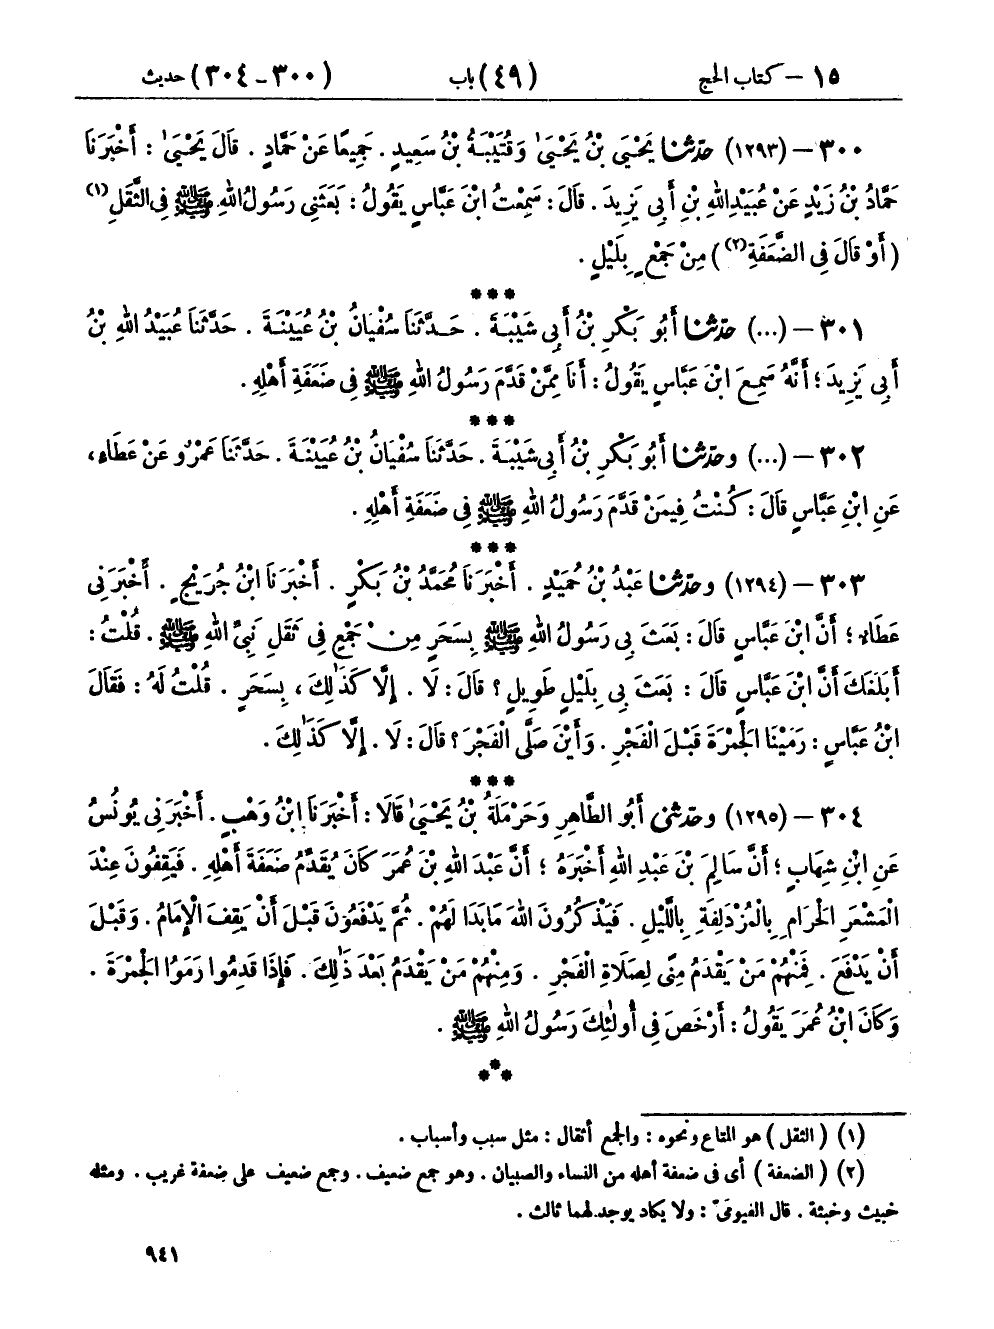 ١٥ – كتاب الحج (٤٩) باب (٣٠٠ – ٣٠٤) حديث
٣٠٠ – (١٢٩٣) حَدَّثَنَا يَحْيَىٰ بْنُ يَحْيَىٰ وَقُتَيْبَةُ بْنُ سَعِيدٍ. جَمِيعًا عَنْ حَمَّادٍ. قَالَ يَحْيَىٰ: أَخْبَرَنَا
حَمَّادُ بْنُ زَيْدٍ عَنْ عُبَيْدِ اللهِ بْنِ أَبِي يَزِيدَ. قَالَ: سَمِعْتُ ابْنَ عَبَّاسٍ يَقُولُ: بَعَثَنِي رَسُولُ اللهِ ﷺ فِي الثَّقَلِ(١)
(أَوْ قَالَ فِي الضَّعَفَةِ(٢)) مِنْ جَمْعٍ بِلَيْلٍ.
***
٣٠١ – (...) حَدَّثَنَا أَبُو بَكْرِ بْنُ أَبِي شَيْبَةَ. حَدَّثَنَا سُفْيَانُ بْنُ عُيَيْنَةَ. حَدَّثَنَا عُبَيْدُ اللهِ بْنُ
أَبِي يَزِيدَ؛ أَنَّهُ سَمِعَ ابْنَ عَبَّاسٍ يَقُولُ: أَنَا مِمَّنْ قَدَّمَ رَسُولُ اللهِ ﷺ فِي ضَعَفَةِ أَهْلِهِ.
***
٣٠٢ – (...) وحَدَّثَنَا أَبُو بَكْرِ بْنُ أَبِي شَيْبَةَ. حَدَّثَنَا سُفْيَانُ بْنُ عُيَيْنَةَ. حَدَّثَنَا عَمْرٌو عَنْ عَطَاءٍ،
عَنِ ابْنِ عَبَّاسٍ قَالَ: كُنْتُ فِيمَنْ قَدَّمَ رَسُولُ اللهِ ﷺ فِي ضَعَفَةِ أَهْلِهِ.
***
٣٠٣ – (١٢٩٤) وحَدَّثَنَا عَبْدُ بْنُ حُمَيْدٍ. أَخْبَرَنَا مُحَمَّدُ بْنُ بَكْرٍ. أَخْبَرَنَا ابْنُ جُرَيْجٍ. أَخْبَرَنِي
عَطَاءٌ؛ أَنَّ ابْنَ عَبَّاسٍ قَالَ: بَعَثَ بِي رَسُولُ اللهِ ﷺ بِسَحَرٍ مِنْ جَمْعٍ فِي ثَقَلِ نَبِيِّ اللهِ ﷺ. قُلْتُ:
أَبَلَغَكَ أَنَّ ابْنَ عَبَّاسٍ قَالَ: بَعَثَ بِي بِلَيْلٍ طَوِيلٍ؟ قَالَ: لَا. إِلَّا كَذَٰلِكَ، بِسَحَرٍ. قُلْتُ لَهُ: فَقَالَ
ابْنُ عَبَّاسٍ: رَمَيْنَا الْجَمْرَةَ قَبْلَ الْفَجْرِ. وَأَيْنَ صَلَّى الْفَجْرَ؟ قَالَ: لَا. إِلَّا كَذَٰلِكَ.
***
٣٠٤ – (١٢٩٥) وحَدَّثَنِي أَبُو الطَّاهِرِ وَحَرْمَلَةُ بْنُ يَحْيَىٰ قَالَا: أَخْبَرَنَا ابْنُ وَهْبٍ. أَخْبَرَنِي يُونُسُ
عَنِ ابْنِ شِهَابٍ؛ أَنَّ سَالِمَ بْنَ عَبْدِ اللهِ أَخْبَرَهُ؛ أَنَّ عَبْدَ اللهِ بْنَ عُمَرَ كَانَ يُقَدِّمُ ضَعَفَةَ أَهْلِهِ. فَيَقِفُونَ عِنْدَ
الْمَشْعَرِ الْحَرَامِ بِالْمُزْدَلِفَةِ بِاللَّيْلِ. فَيَذْكُرُونَ اللهَ مَا بَدَا لَهُمْ. ثُمَّ يَدْفَعُونَ قَبْلَ أَنْ يَقِفَ الْإِمَامُ. وَقَبْلَ
أَنْ يَدْفَعَ. فَمِنْهُمْ مَنْ يَقْدَمُ مِنًى لِصَلَاةِ الْفَجْرِ. وَمِنْهُمْ مَنْ يَقْدَمُ بَعْدَ ذَٰلِكَ. فَإِذَا قَدِمُوا رَمَوُا الْجَمْرَةَ.
وَكَانَ ابْنُ عُمَرَ يَقُولُ: أَرْخَصَ فِي أُولَٰئِكَ رَسُولُ اللهِ ﷺ.
***
(١) (الثقل) هو المتاع ونحوه: والجمع أثقال: مثل سبب وأسباب.
(٢) (الضعفة) أى فى ضعفة أهله من النساء والصبيان. وهو جمع ضعيف. وجمع ضعيف على ضعفة غريب. ومثله
خبيث وخبثة. قال الفيومىّ: ولا يكاد يوجد لهما ثالث.
٩٤١